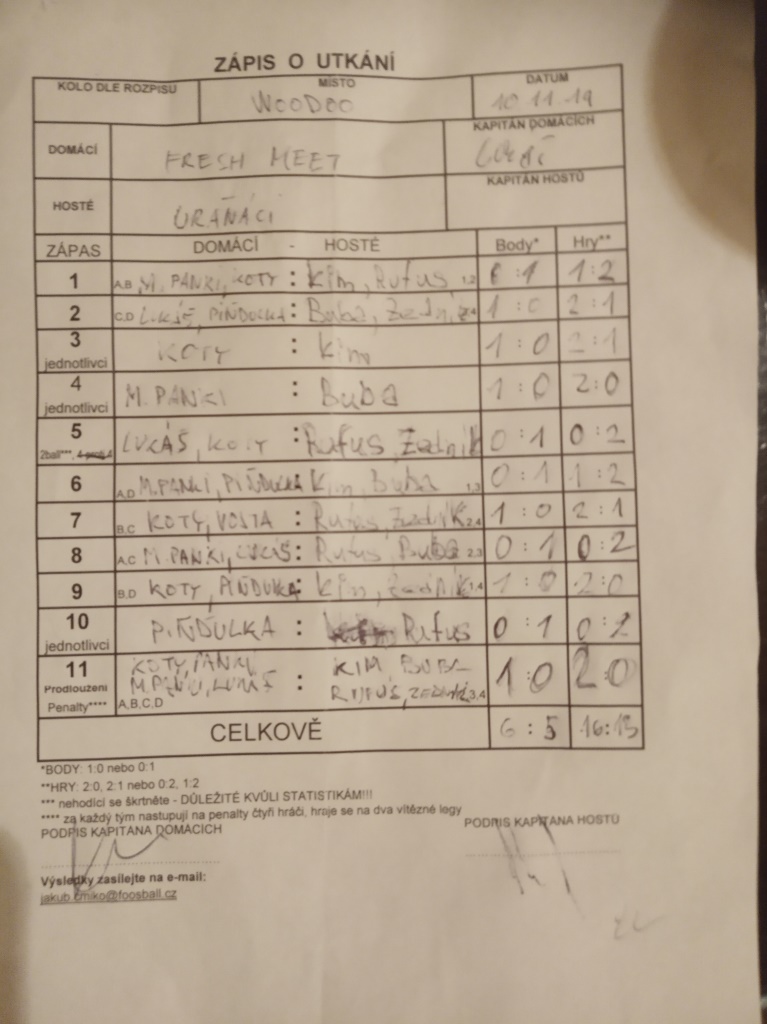 ZÁPIS O UTKÁNÍ
KOLO DLE ROZPISU MÍSTO DATUM
WOODOO 10 11 19
DOMÁCÍ FRESH MEET KAPITÁN DOMÁCÍCH
HOSTÉ URÁŇÁCI KAPITÁN HOSTŮ
ZÁPAS DOMÁCÍ - HOSTÉ Body* Hry**
1 A,B M. PANKI, KOTY : Kim, Rufus 1,2 0:1 1:2
2 C,D LUKÁŠ, PIŇĎULKA : Buba, Zedník 1:0 2:1
3 jednotlivci KOTY : Kim 1:0 2:1
4 jednotlivci M. PANKI : Buba 1:0 2:0
5 2ball***, LUKÁŠ, KOTY : Rufus, Zedník 0:1 0:2
6 A,D M. PANKI, PIŇĎULKA Kim, Buba 1,3 0:1 1:2
7 B,C KOTY, VOJTA : Rufus, Zedník 2,4 1:0 2:1
8 A,C M. PANKI, LUKÁŠ : Rufus, Buba 2,3 0:1 0:2
9 B,D KOTY, PIŇĎULKA : Kim, Zedník 1,4 1:0 2:0
10 jednotlivci PIŇĎULKA : Rufus 0:1 0:2
11 KOTY, KIM BUBA 1:0 2:0
Prodloužení : RUFUS, 3,4
Penalty**** A,B,C,D
CELKOVĚ 6:5 16:13
*BODY: 1:0 nebo 0:1
**HRY: 2:0, 2:1 nebo 0:2, 1:2
*** nehodící se škrtněte - DŮLEŽITÉ KVŮLI STATISTIKÁM!!!
**** za každý tým nastupují na penalty čtyři hráči, hraje se na dva vítězné legy
PODPIS KAPITÁNA DOMÁCÍCH PODPIS KAPITÁNA HOSTŮ
Výsledky zasílejte na e-mail: